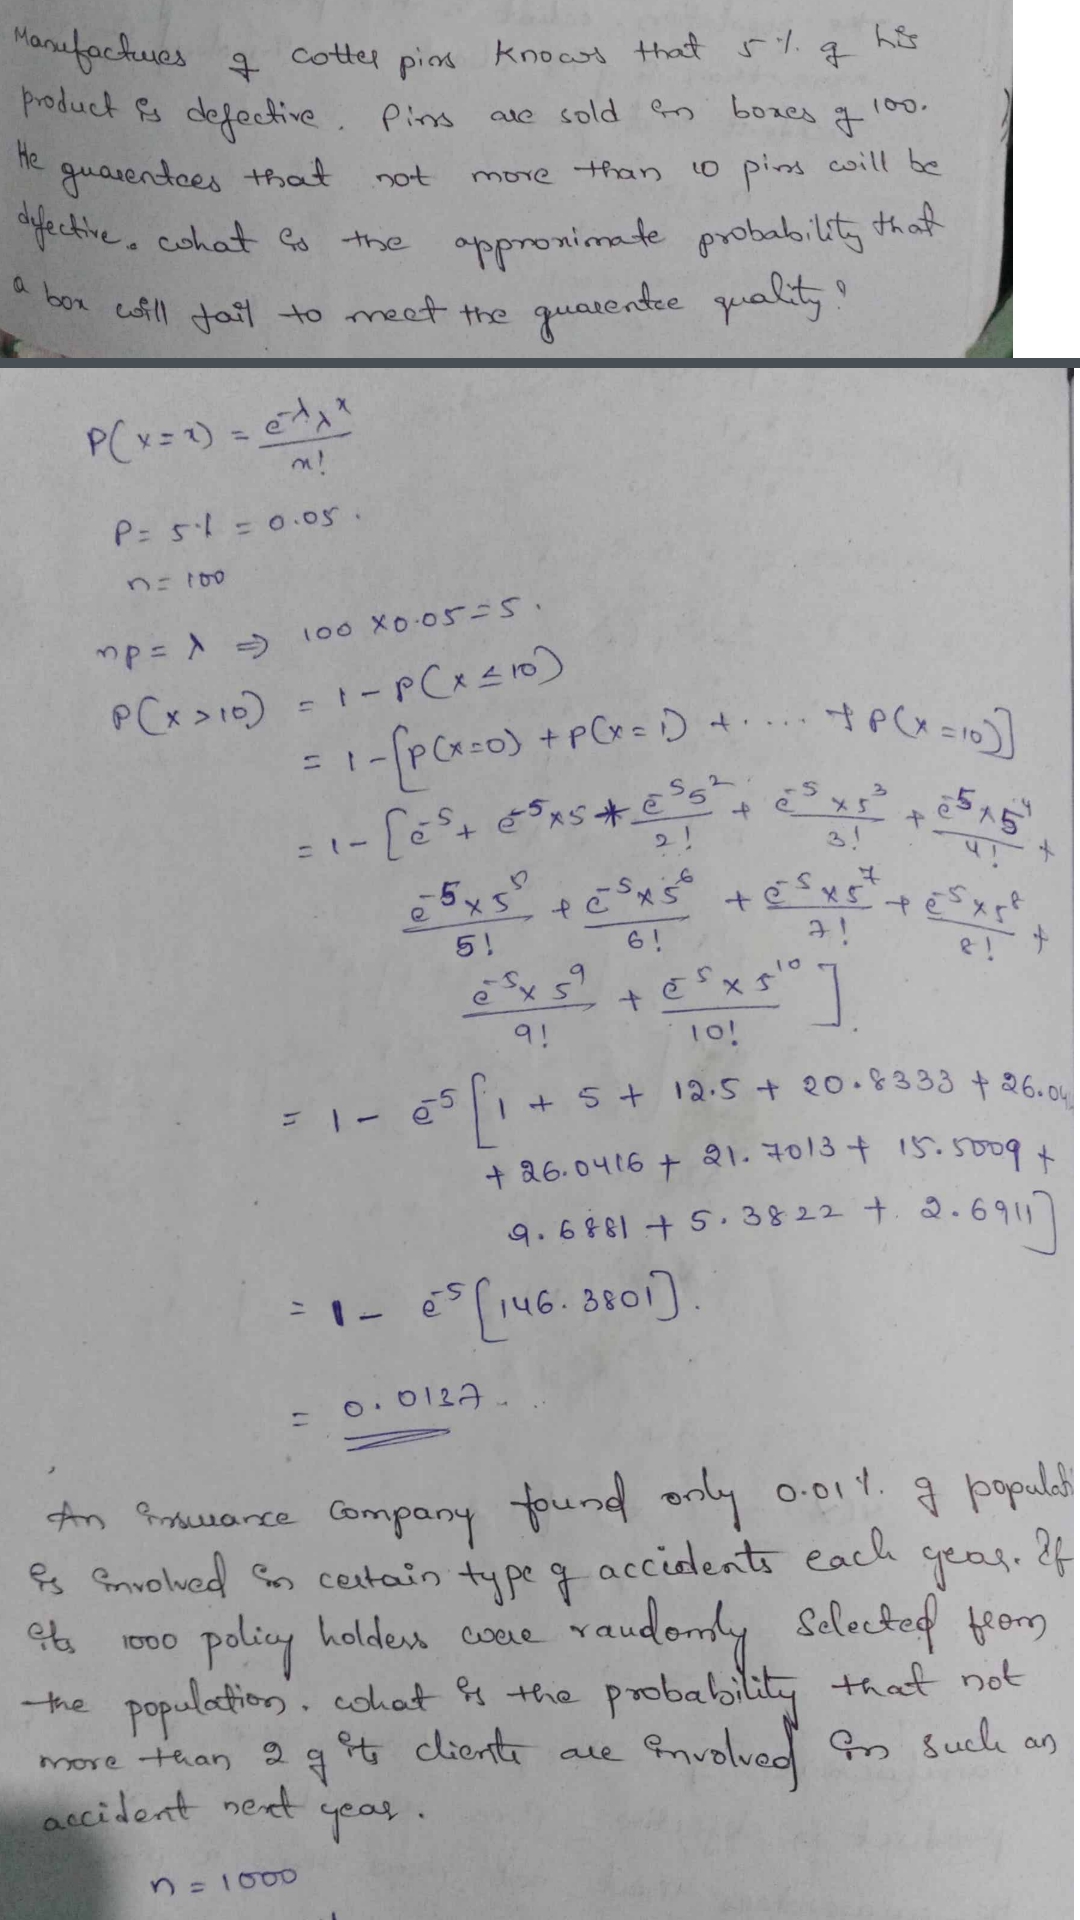 Manufactures of cotter pins knows that 5% of his
product is defective. Pins are sold in boxes of 100.
He guarentees that not more than 10 pins will be
defective. What is the approximate probability that
a box will fail to meet the guarentee quality?
P(x=x) = e^-λ λ^x / x!
P = 5% = 0.05.
n = 100
np = λ ⇒ 100 × 0.05 = 5.
P(x > 10) = 1 - P(x ≤ 10)
= 1 - [P(x=0) + P(x=1) + .... + P(x=10)]
= 1 - [e^-5 + e^-5 × 5 + e^-5 5^2 / 2! + e^-5 × 5^3 / 3! + e^-5 × 5^4 / 4! +
e^-5 × 5^5 / 5! + e^-5 × 5^6 / 6! + e^-5 × 5^7 / 7! + e^-5 × 5^8 / 8! +
e^-5 × 5^9 / 9! + e^-5 × 5^10 / 10! ].
= 1 - e^-5 [1 + 5 + 12.5 + 20.8333 + 26.04
+ 26.0416 + 21.7013 + 15.5009 +
9.6881 + 5.3822 + 2.6911]
= 1 - e^-5 [146.3801].
= 0.0137.
An insurance company found only 0.01% of populati
is involved in certain type of accidents each year. If
its 1000 policy holders were randomly selected from
the population. What is the probability that not
more than 2 of its clients are involved in such an
accident next year.
n = 1000